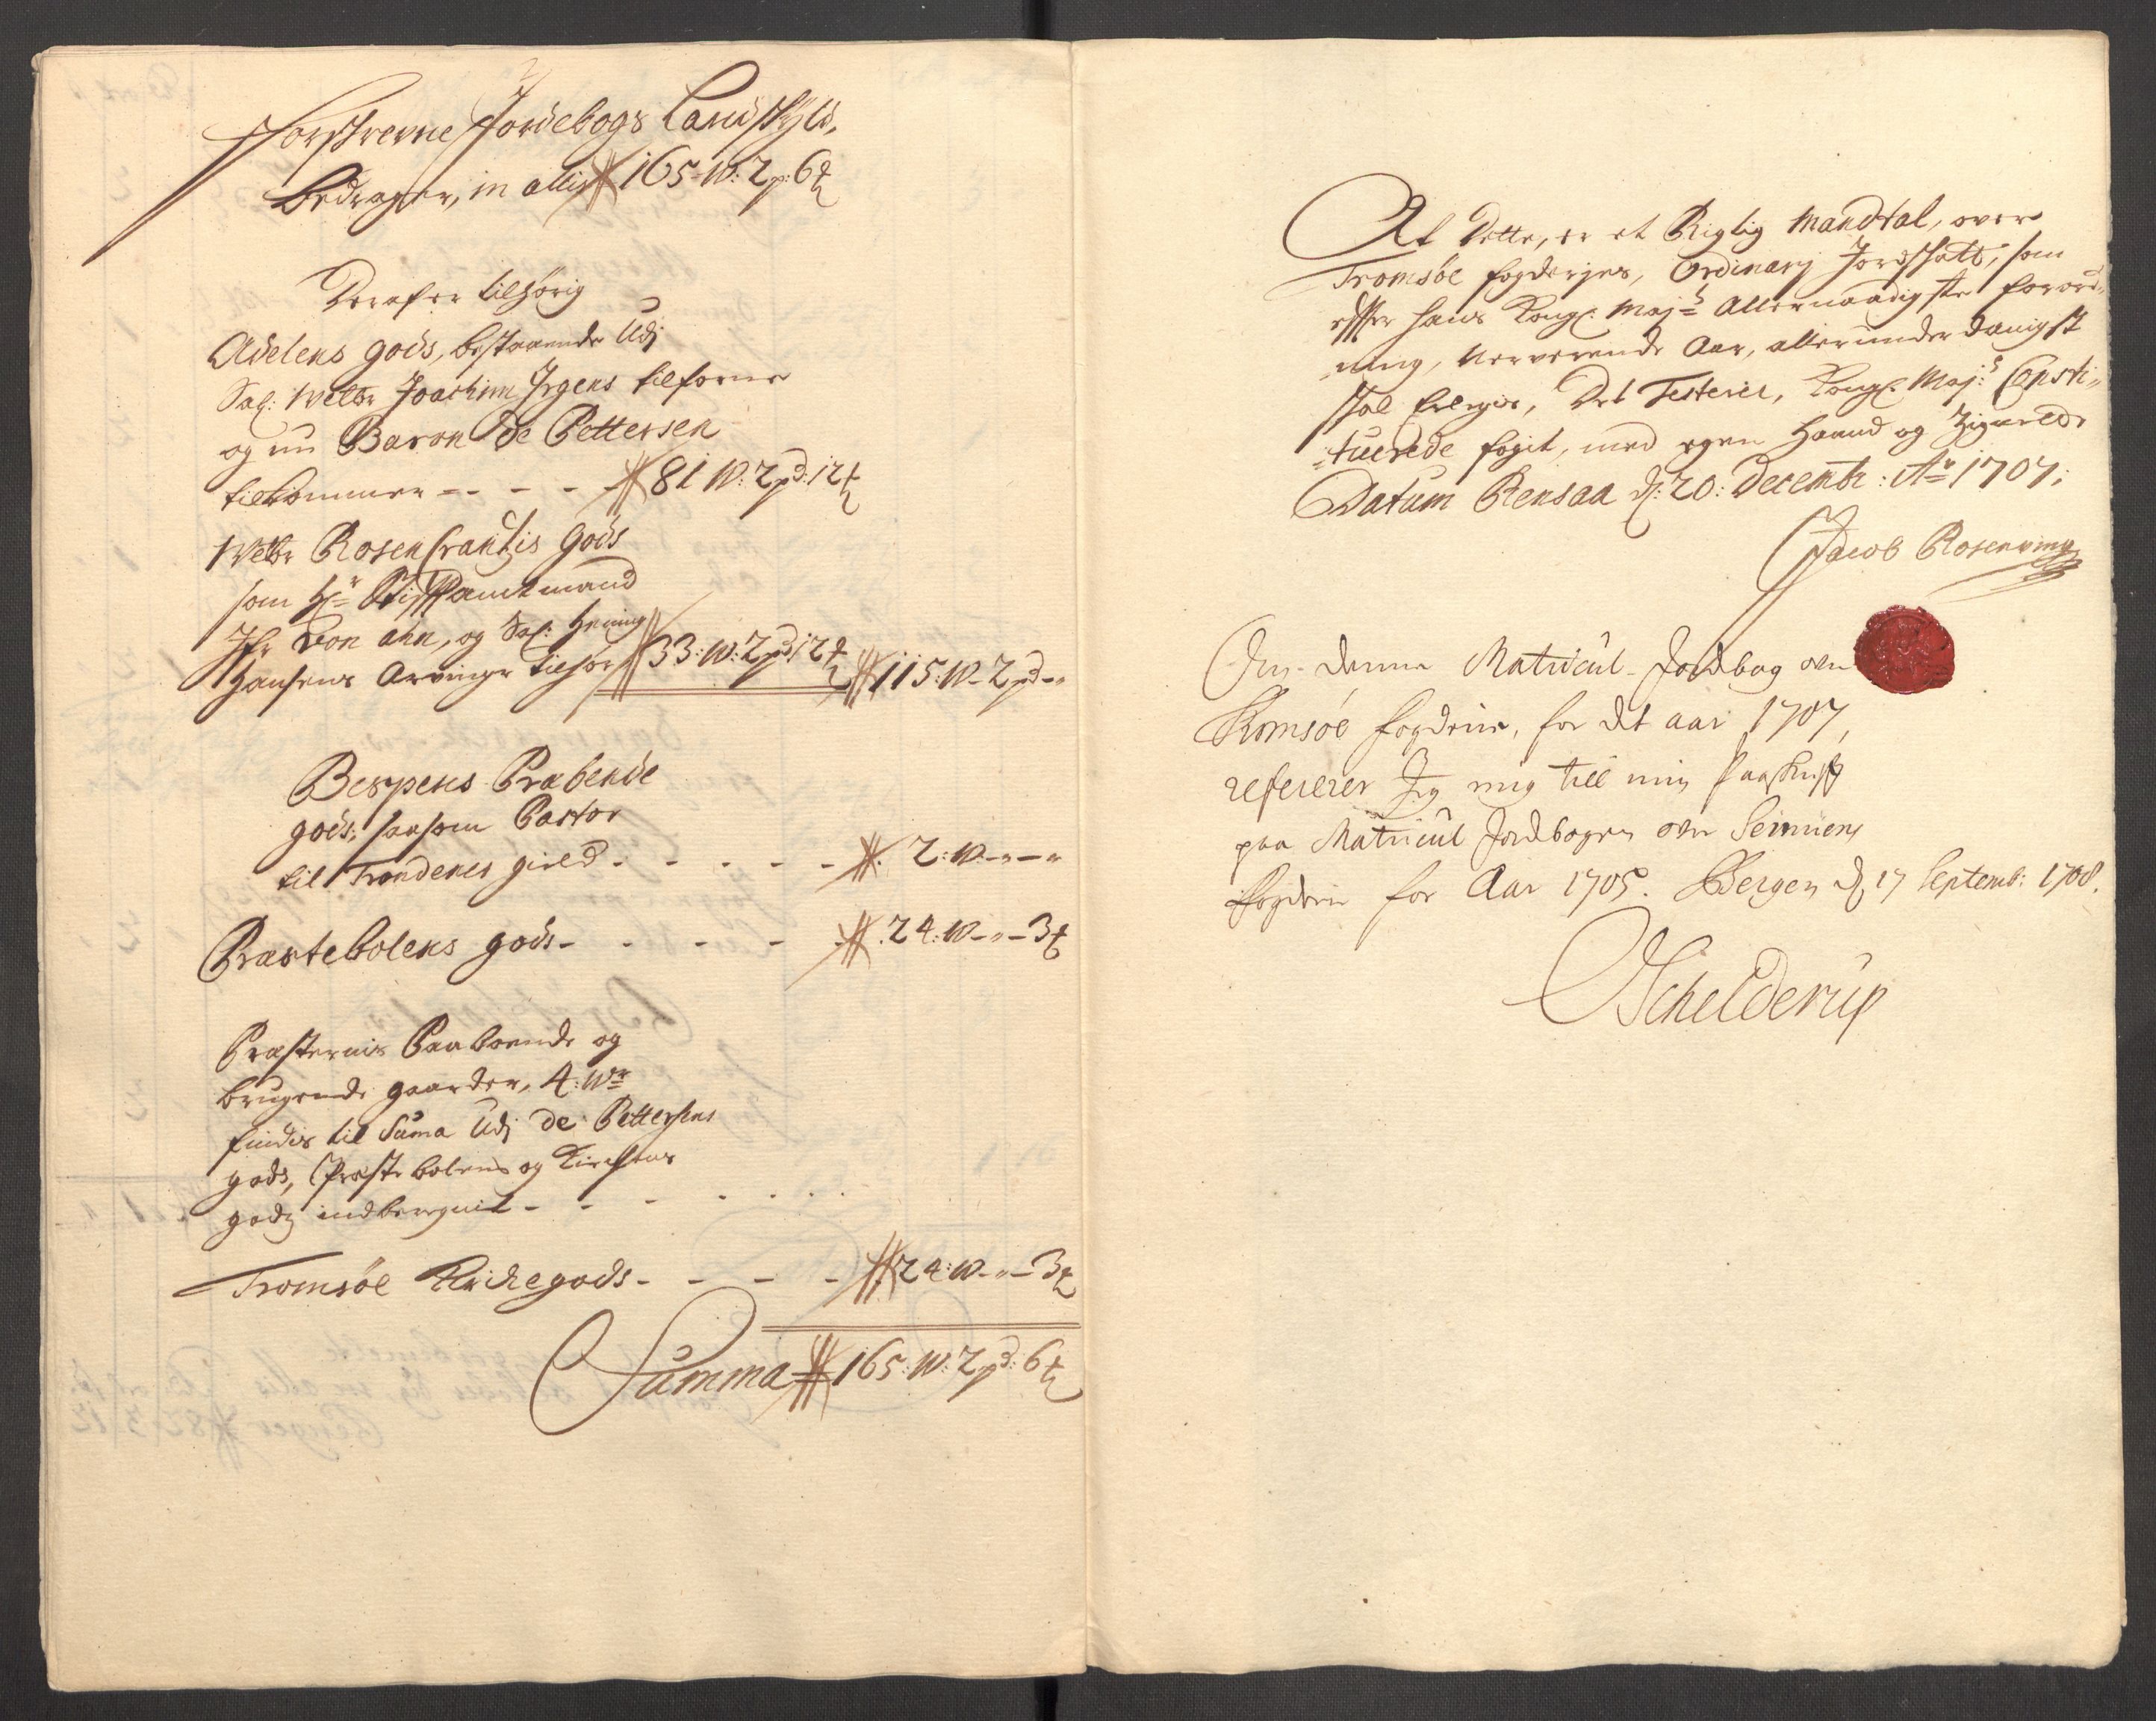 Forskrefne Jordebogs Landskyld,
Bedrager, in allis 165 W: 2 p: 6 ℔
Deraf er tilhörig
Adelens gods, bestaaende Udj
Sal: Welbr Joachim Jrgens tilforne
og nu Baron de Pettersen
tilkommer - - - - 81 W: 2 pd: 12 ℔
Welbr Rosencrantzis Gods
som Hr Stifftamtmand
Jfr von ahn, og Sal: Hening
Hansens Arvinger tilhör 33: W: 2 pd 12 ℔ 115: W - 2 pd - "
Bespens Præbende
gods, saasom Pastor
til Trondenes gield - - - - - 2: W - " - "
Præstebolens gods - - - - - 24: W - " - 3 ℔
Præsternis Paaboende og
brugende gaarder, 4: Wr
findis til Suma Udj de Pettersens
gods, Præstebolens og Kirchens
godz indberegnit - - - - - -
Tromsöe Kirchegods - - - - 24: W - " - 3 ℔
Summa 165: W: 2 pd: 6 ℔
At Dette, er et Rigtig Mandtal, over
Tromsöe fogderjes, Ordinarj Jordskatt, som
efter Hans Kongl: Maj:s Allernaadigste forord-
ning, nerverende Aar, allerunderdanigst
skal erlegis, Det Testerer, Kongl: Maj:s Consti-
tuerede fogit, med egen Haand og Zignede
Datum Rensaa d: 20: Decembr: Ao 1707:
Jacob Rosenving
Om denne Matricul-Jordbog over
Tromsöe fogderie, for det aar 1707,
refererer Jeg mig till min Paaskrifft
paa Matricul Jordbogen over Senniens
fogderie for Aar 1705. Bergen d 17 Septemb: 1708.
Schelderup